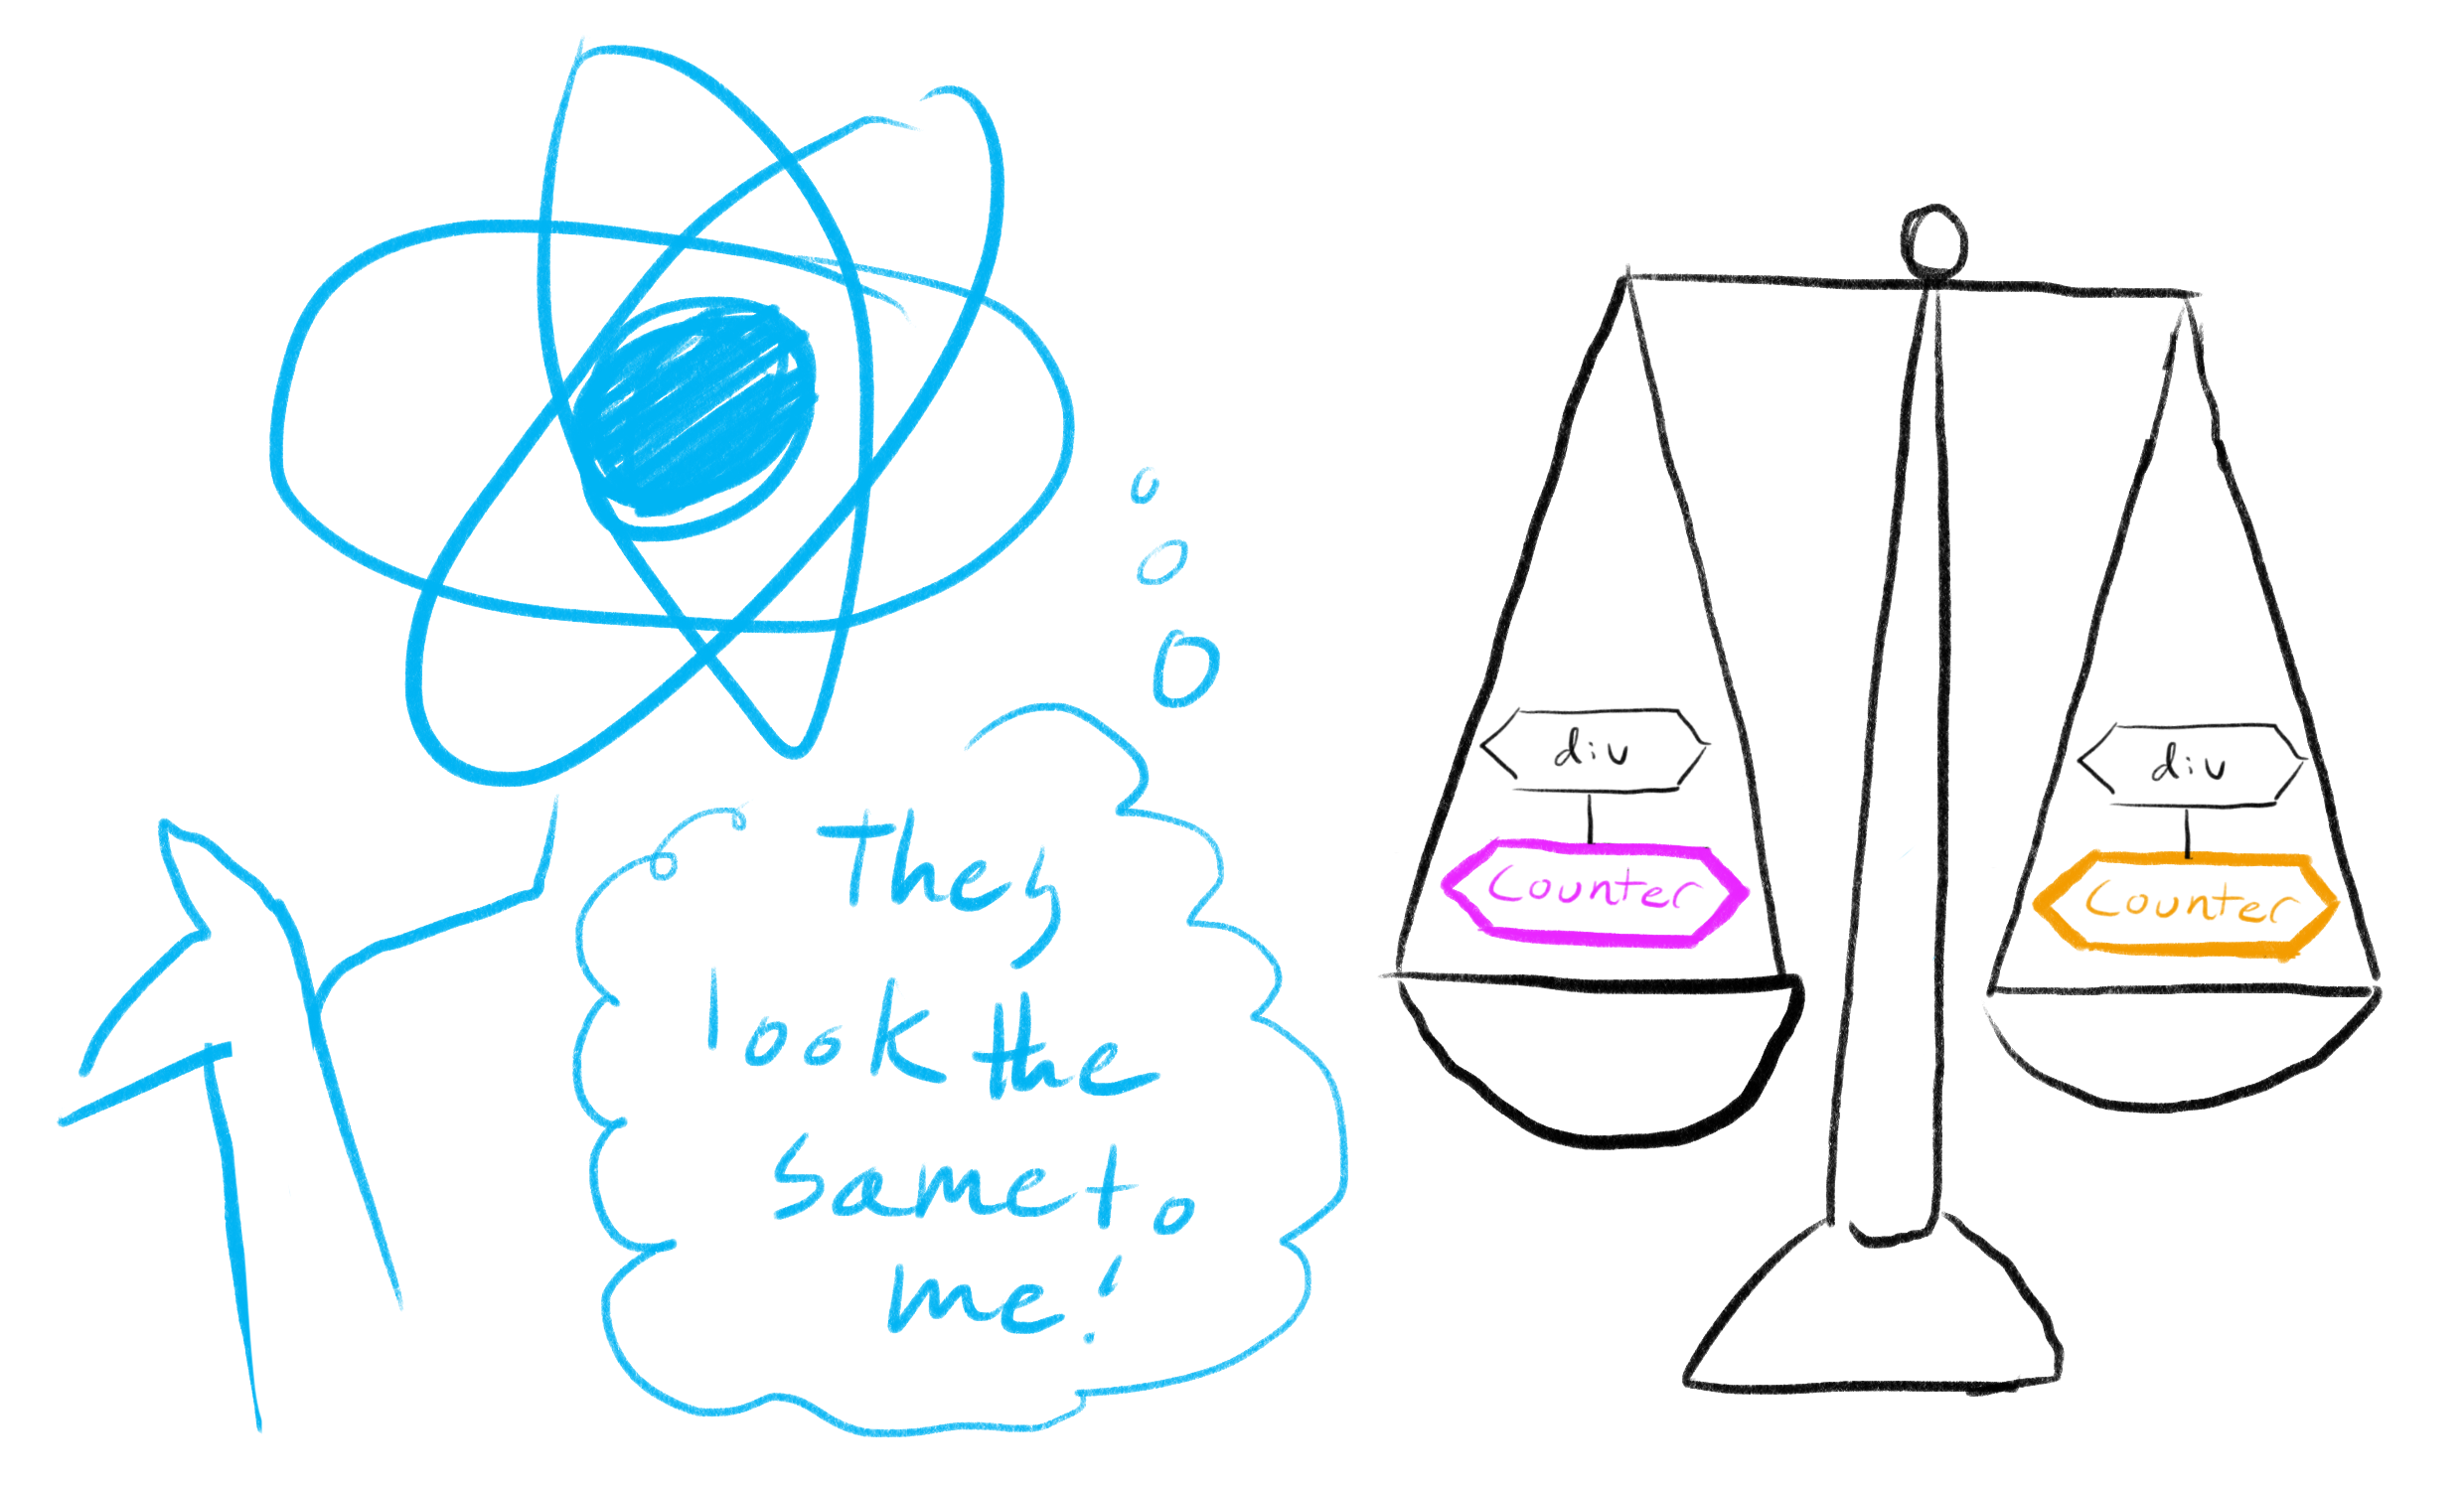 They
look the
same to
me!
div
Counter
div
Counter